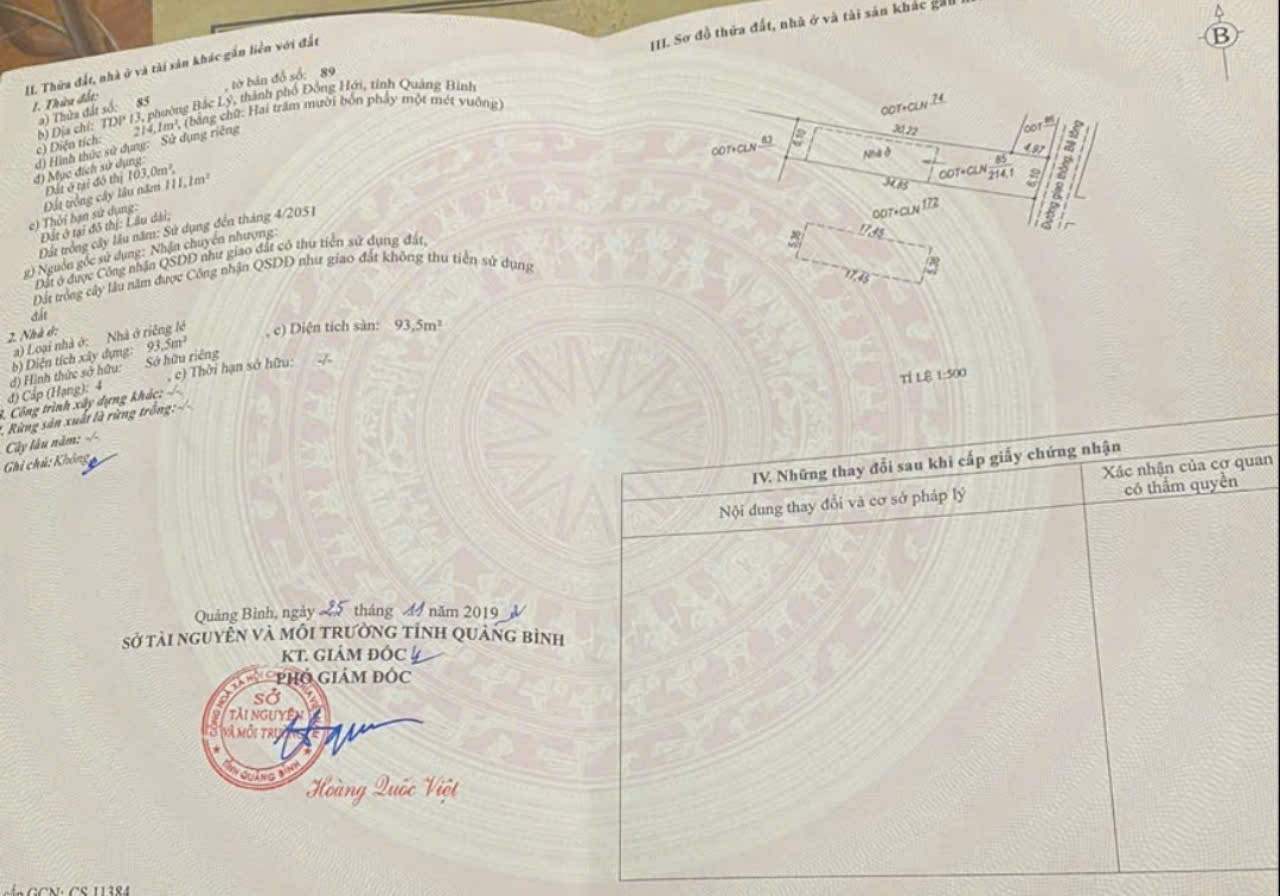 II. Thửa đất, nhà ở và tài sản khác gắn liền với đất
1. Thửa đất:
a) Thửa đất số: 85 , tờ bản đồ số: 89
b) Địa chỉ: TDP 13, phường Bắc Lý, thành phố Đồng Hới, tỉnh Quảng Bình
c) Diện tích: 214,1m², (bằng chữ: Hai trăm mười bốn phẩy một mét vuông)
d) Hình thức sử dụng: Sử dụng riêng
đ) Mục đích sử dụng:
Đất ở tại đô thị 103,0m²,
Đất trồng cây lâu năm 111,1m²
e) Thời hạn sử dụng:
Đất ở tại đô thị: Lâu dài;
Đất trồng cây lâu năm: Sử dụng đến tháng 4/2051
g) Nguồn gốc sử dụng: Nhận chuyển nhượng:
Đất ở được Công nhận QSDĐ như giao đất có thu tiền sử dụng đất,
Đất trồng cây lâu năm được Công nhận QSDĐ như giao đất không thu tiền sử dụng
đất
2. Nhà ở:
a) Loại nhà ở: Nhà ở riêng lẻ
b) Diện tích xây dựng: 93,5m² , c) Diện tích sàn: 93,5m²
d) Hình thức sở hữu: Sở hữu riêng
đ) Cấp (Hạng): 4 , e) Thời hạn sở hữu: -/-
3. Công trình xây dựng khác: -/-
. Rừng sản xuất là rừng trồng: -/-
Cây lâu năm: -/-
Ghi chú: Không
Quảng Bình, ngày 25 tháng 11 năm 2019
SỞ TÀI NGUYÊN VÀ MÔI TRƯỜNG TỈNH QUẢNG BÌNH
KT. GIÁM ĐỐC
PHÓ GIÁM ĐỐC
SỞ
TÀI NGUYÊN
VÀ MÔI TRƯỜNG
TỈNH QUẢNG BÌNH
Hoàng Quốc Việt
GCN: CS 11384
III. Sơ đồ thửa đất, nhà ở và tài sản khác gắn
B
ODT+CLN 74
ODT+CLN 83
6,10
30,22
Nhà ở
ODT 86
4,97
ODT+CLN 85
214,1
6,10
34,85
Đường giao thông Bê tông
ODT+CLN 172
5,36
17,45
5,36
17,45
TỈ LỆ 1:500
IV. Những thay đổi sau khi cấp giấy chứng nhận
Nội dung thay đổi và cơ sở pháp lý
Xác nhận của cơ quan
có thẩm quyền